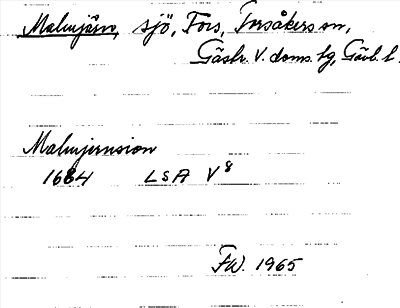 Malmjärn, sjö, Fors, Torsåkers sn,
Gästr. V. doms. hg, Gävl. l.
Malmjernsion
1684 LSA V8
FW. 1965